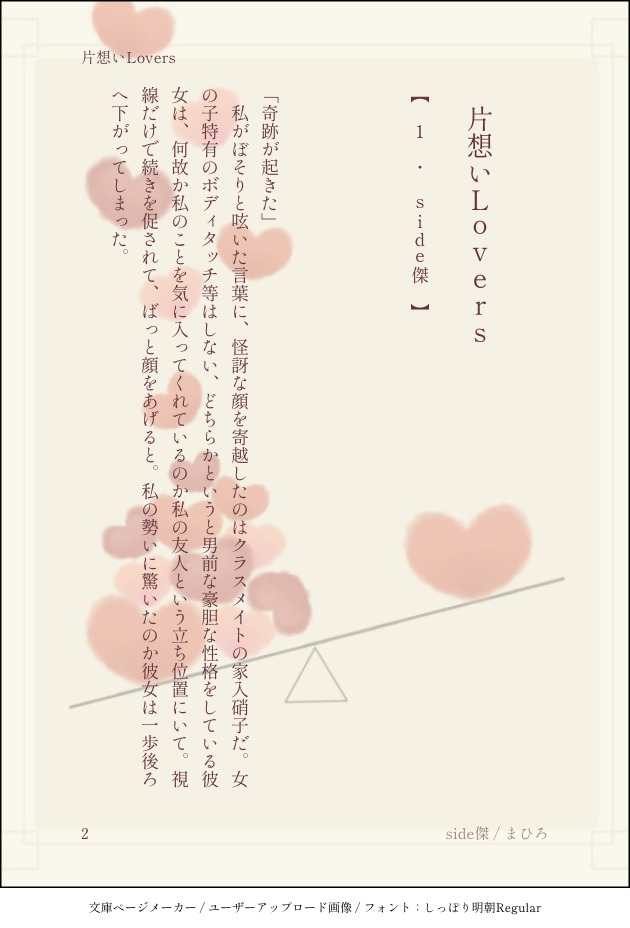 片想いLovers
片想いLovers
【 1 . side傑 】
「奇跡が起きた」
　私がぼそりと呟いた言葉に、怪訝な顔を寄越したのはクラスメイトの家入硝子だ。女
の子特有のボディタッチ等はしない、どちらかというと男前な豪胆な性格をしている彼
女は、何故か私のことを気に入ってくれているのか私の友人という立ち位置にいて。視
線だけで続きを促されて、ばっと顔をあげると。私の勢いに驚いたのか彼女は一歩後ろ
へ下がってしまった。
2
side傑 / まひろ
文庫ページメーカー / ユーザーアップロード画像 / フォント：しっぽり明朝Regular